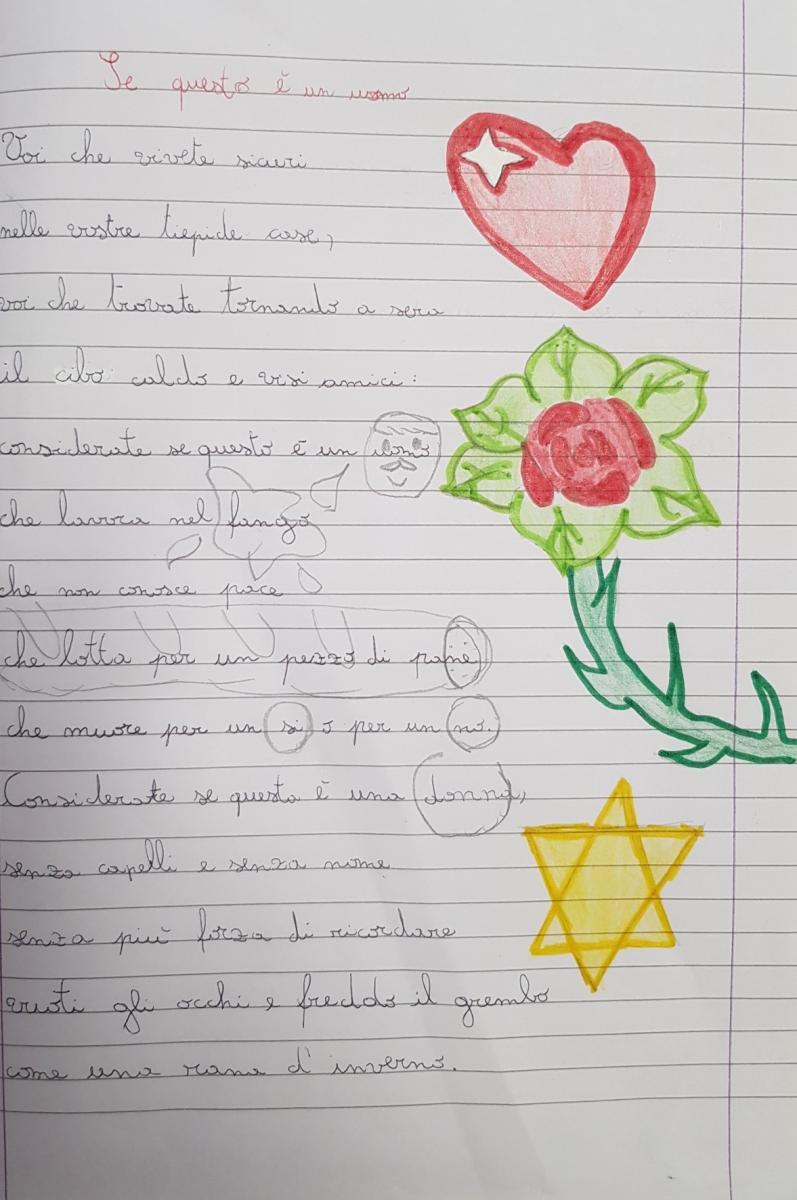 Se questo è un uomo
Voi che vivete sicuri
nelle vostre tiepide case,
voi che trovate tornando a sera
il cibo caldo e visi amici:
considerate se questo è un uomo
che lavora nel fango
che non conosce pace
che lotta per un pezzo di pane
che muore per un si o per un no.
Considerate se questa è una donna,
senza capelli e senza nome
senza più forza di ricordare
vuoti gli occhi e freddo il grembo
come una rana d'inverno.